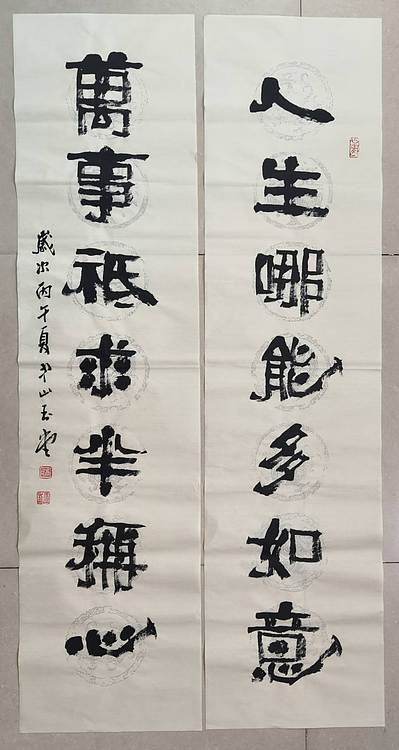 人生哪能多如意
萬事祗求半稱心
歲次丙午夏月山玉堂